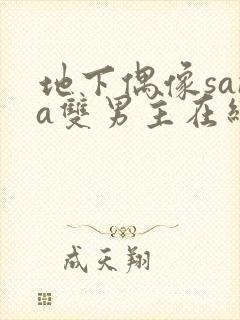 地下偶像sa
a雙男主在
成天翔